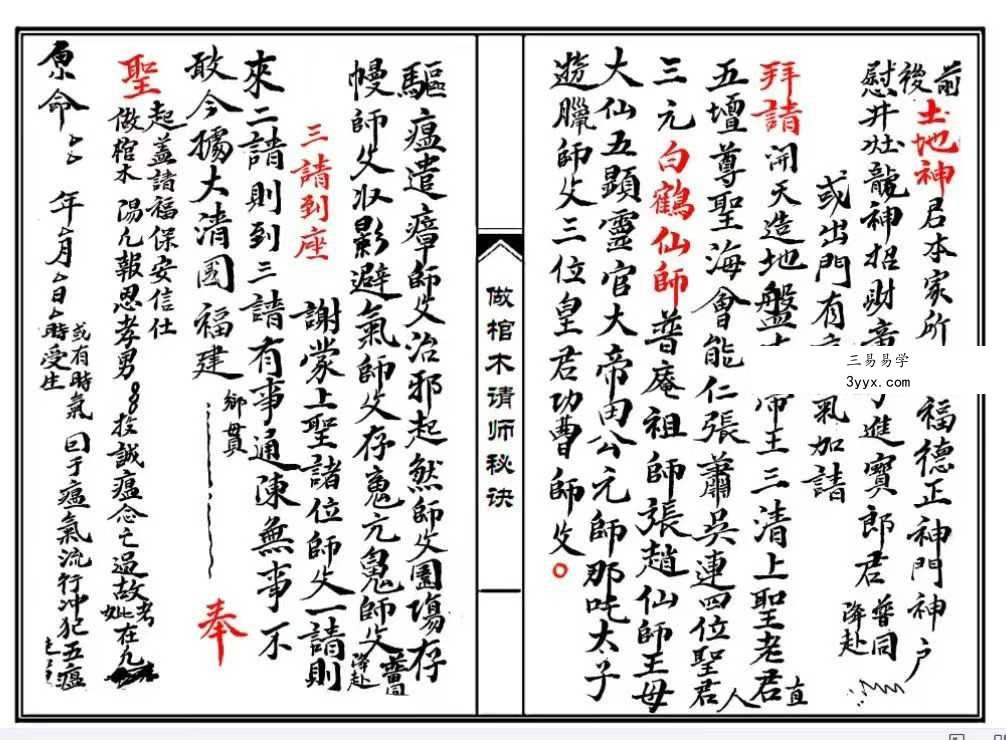 前後土地神君本家所福德正神門神户
慰井灶龍神招財進寶郎君普同降赴
或出門有氣加請
拜請開天造地盤帝王三清上聖老君直
五壇尊聖海會能仁張蕭吳連四位聖君人
三元白鶴仙師普庵祖師張趙仙師王母
大仙五顯靈官大帝田公元師那吒太子
遊臘師父三位皇君功曹師父
三易易学
3yyx.com
做棺木请师秘诀
驅瘟遣瘴師父治邪起煞師父園場存
幔師父收影避氣師父存魂元鬼師父普同降赴
三請到座
謝蒙上聖諸位師父一請則
來二請則到三請有事通陳無事不
敢今據大清國福建鄉貫奉
聖起蓋諸福保安信仕
做棺木陽凡報恩孝男投誠瘟念亡過故考妣在九
原命年月日時受生或有時氣曰于瘟氣流行冲犯五瘟